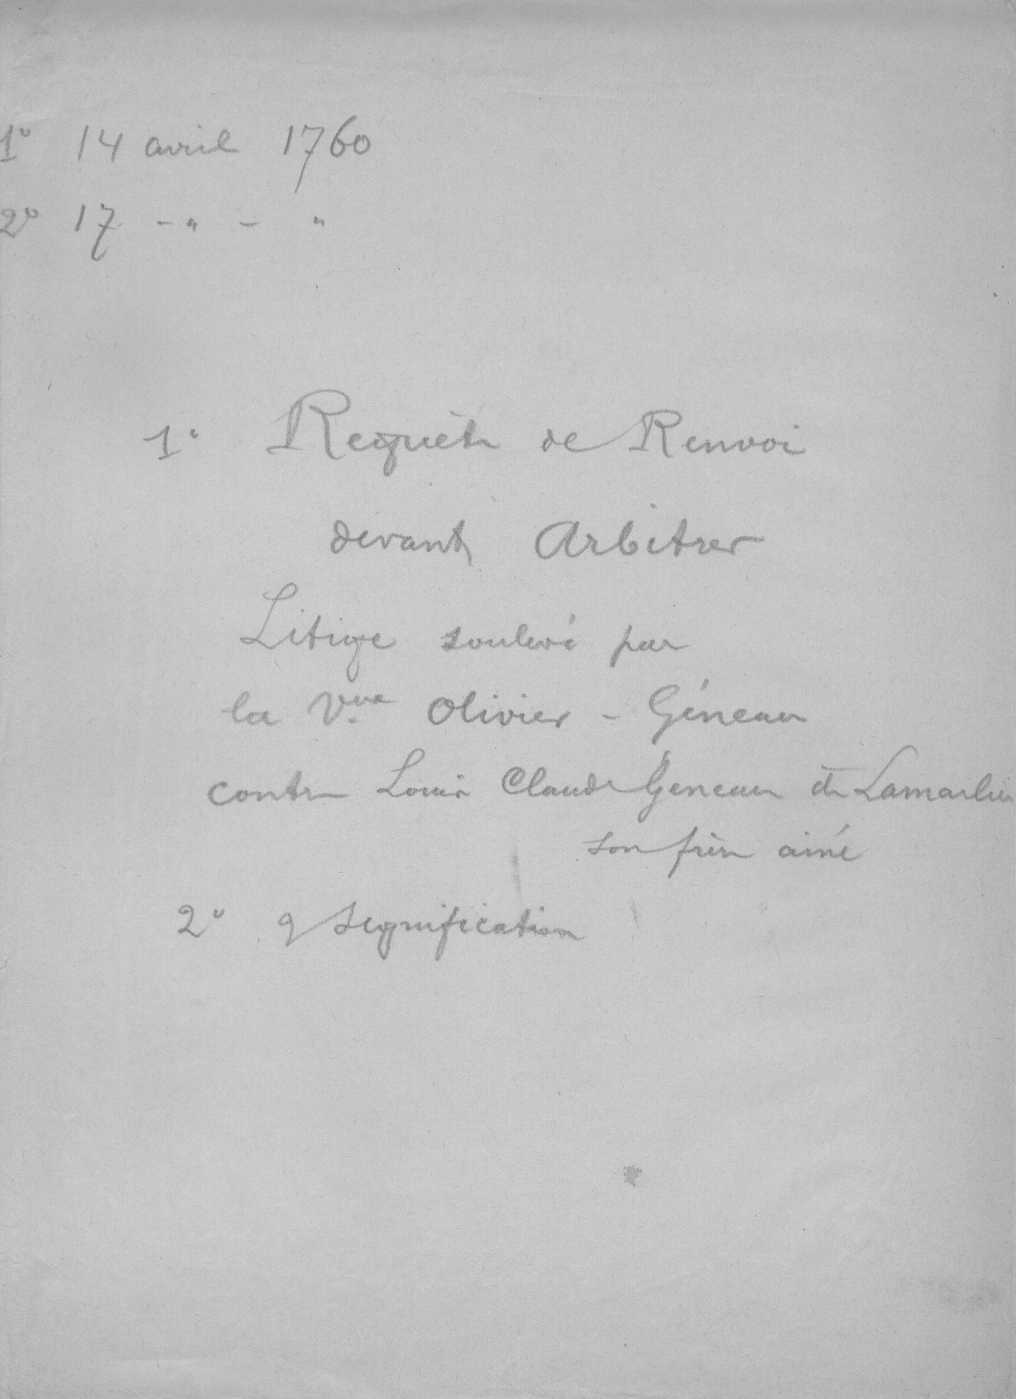 1° 14 avril 1760
2° 17 - " - "
1° Requête de Renvoi
devant Arbitrer
Litige soulevé par
la Vve Olivier - Géneau
contre Louis Claude Géneau de
son frère ainé
2° signification